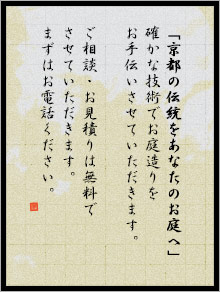 「京都の伝統をあなたのお庭へ」
確かな技術でお庭造りを
お手伝いさせていただきます。
ご相談・お見積りは無料で
させていただきます。
まずはお電話ください。